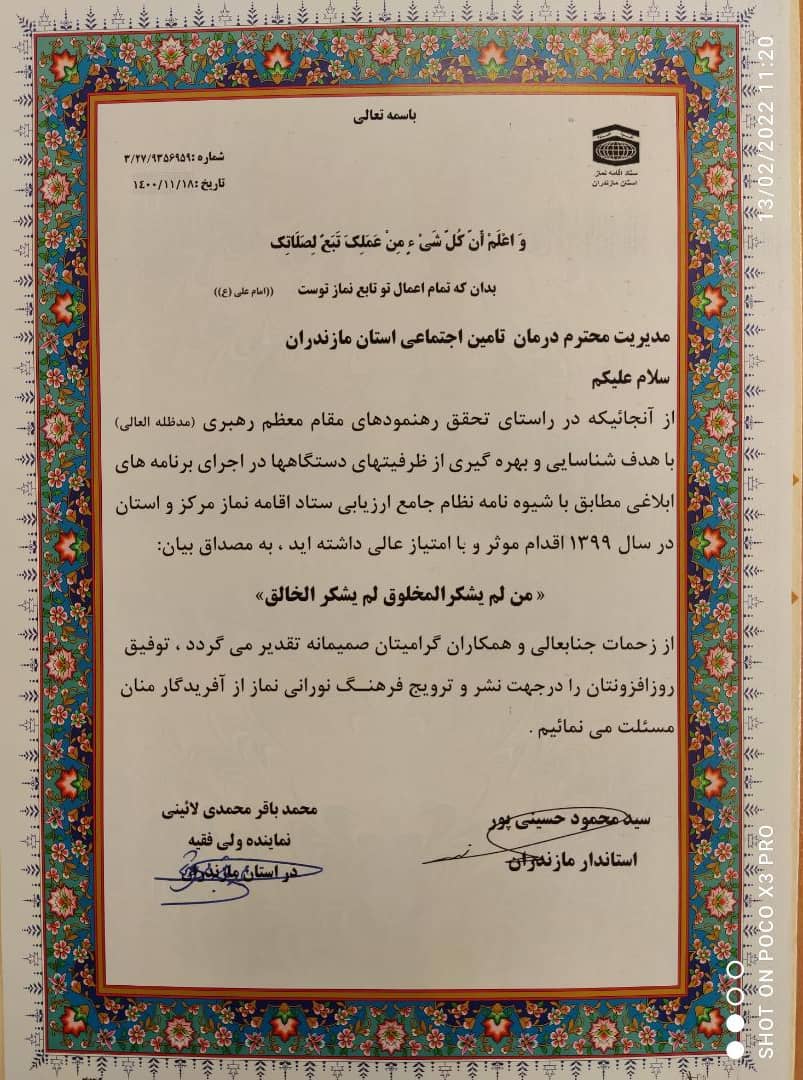 باسمه تعالی
ستاد اقامه نماز
استان مازندران
شماره :۳/۲۷/۹۳۵۶۹۵۹
تاریخ :۱۴۰۰/۱۱/۱۸
وَ اعْلَمْ أنَّ کُلَّ شَیْ ءٍ مِنْ عَمَلِکَ تَبَعٌ لِصَلَاتِکَ
بدان که تمام اعمال تو تابع نماز توست ((امام علی (ع))
مدیریت محترم درمان تامین اجتماعی استان مازندران
سلام علیکم
از آنجائیکه در راستای تحقق رهنمودهای مقام معظم رهبری (مدظله العالی)
با هدف شناسایی و بهره گیری از ظرفیتهای دستگاهها در اجرای برنامه های
ابلاغی مطابق با شیوه نامه نظام جامع ارزیابی ستاد اقامه نماز مرکز و استان
در سال ۱۳۹۹ اقدام موثر و با امتیاز عالی داشته اید ، به مصداق بیان:
« من لم یشکرالمخلوق لم یشکر الخالق»
از زحمات جنابعالی و همکاران گرامیتان صمیمانه تقدیر می گردد ، توفیق
روزافزونتان را درجهت نشر و ترویج فرهنگ نورانی نماز از آفریدگار منان
مسئلت می نمائیم .
سید محمود حسینی پور
استاندار مازندران
محمد باقر محمدی لائینی
نماینده ولی فقیه
در استان مازندران
13/02/2022 11:20
SHOT ON POCO X3 PRO